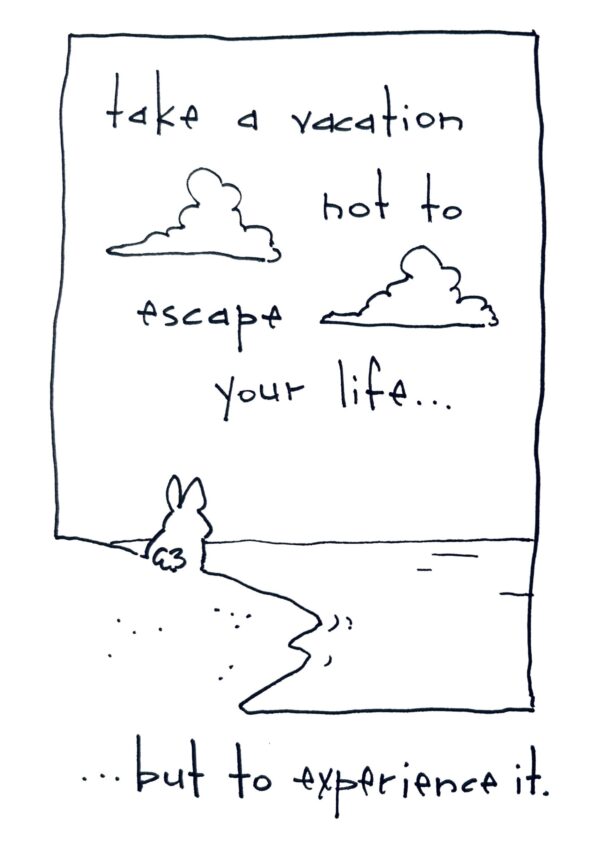 take a vacation
not to
escape
your life...
...but to experience it.